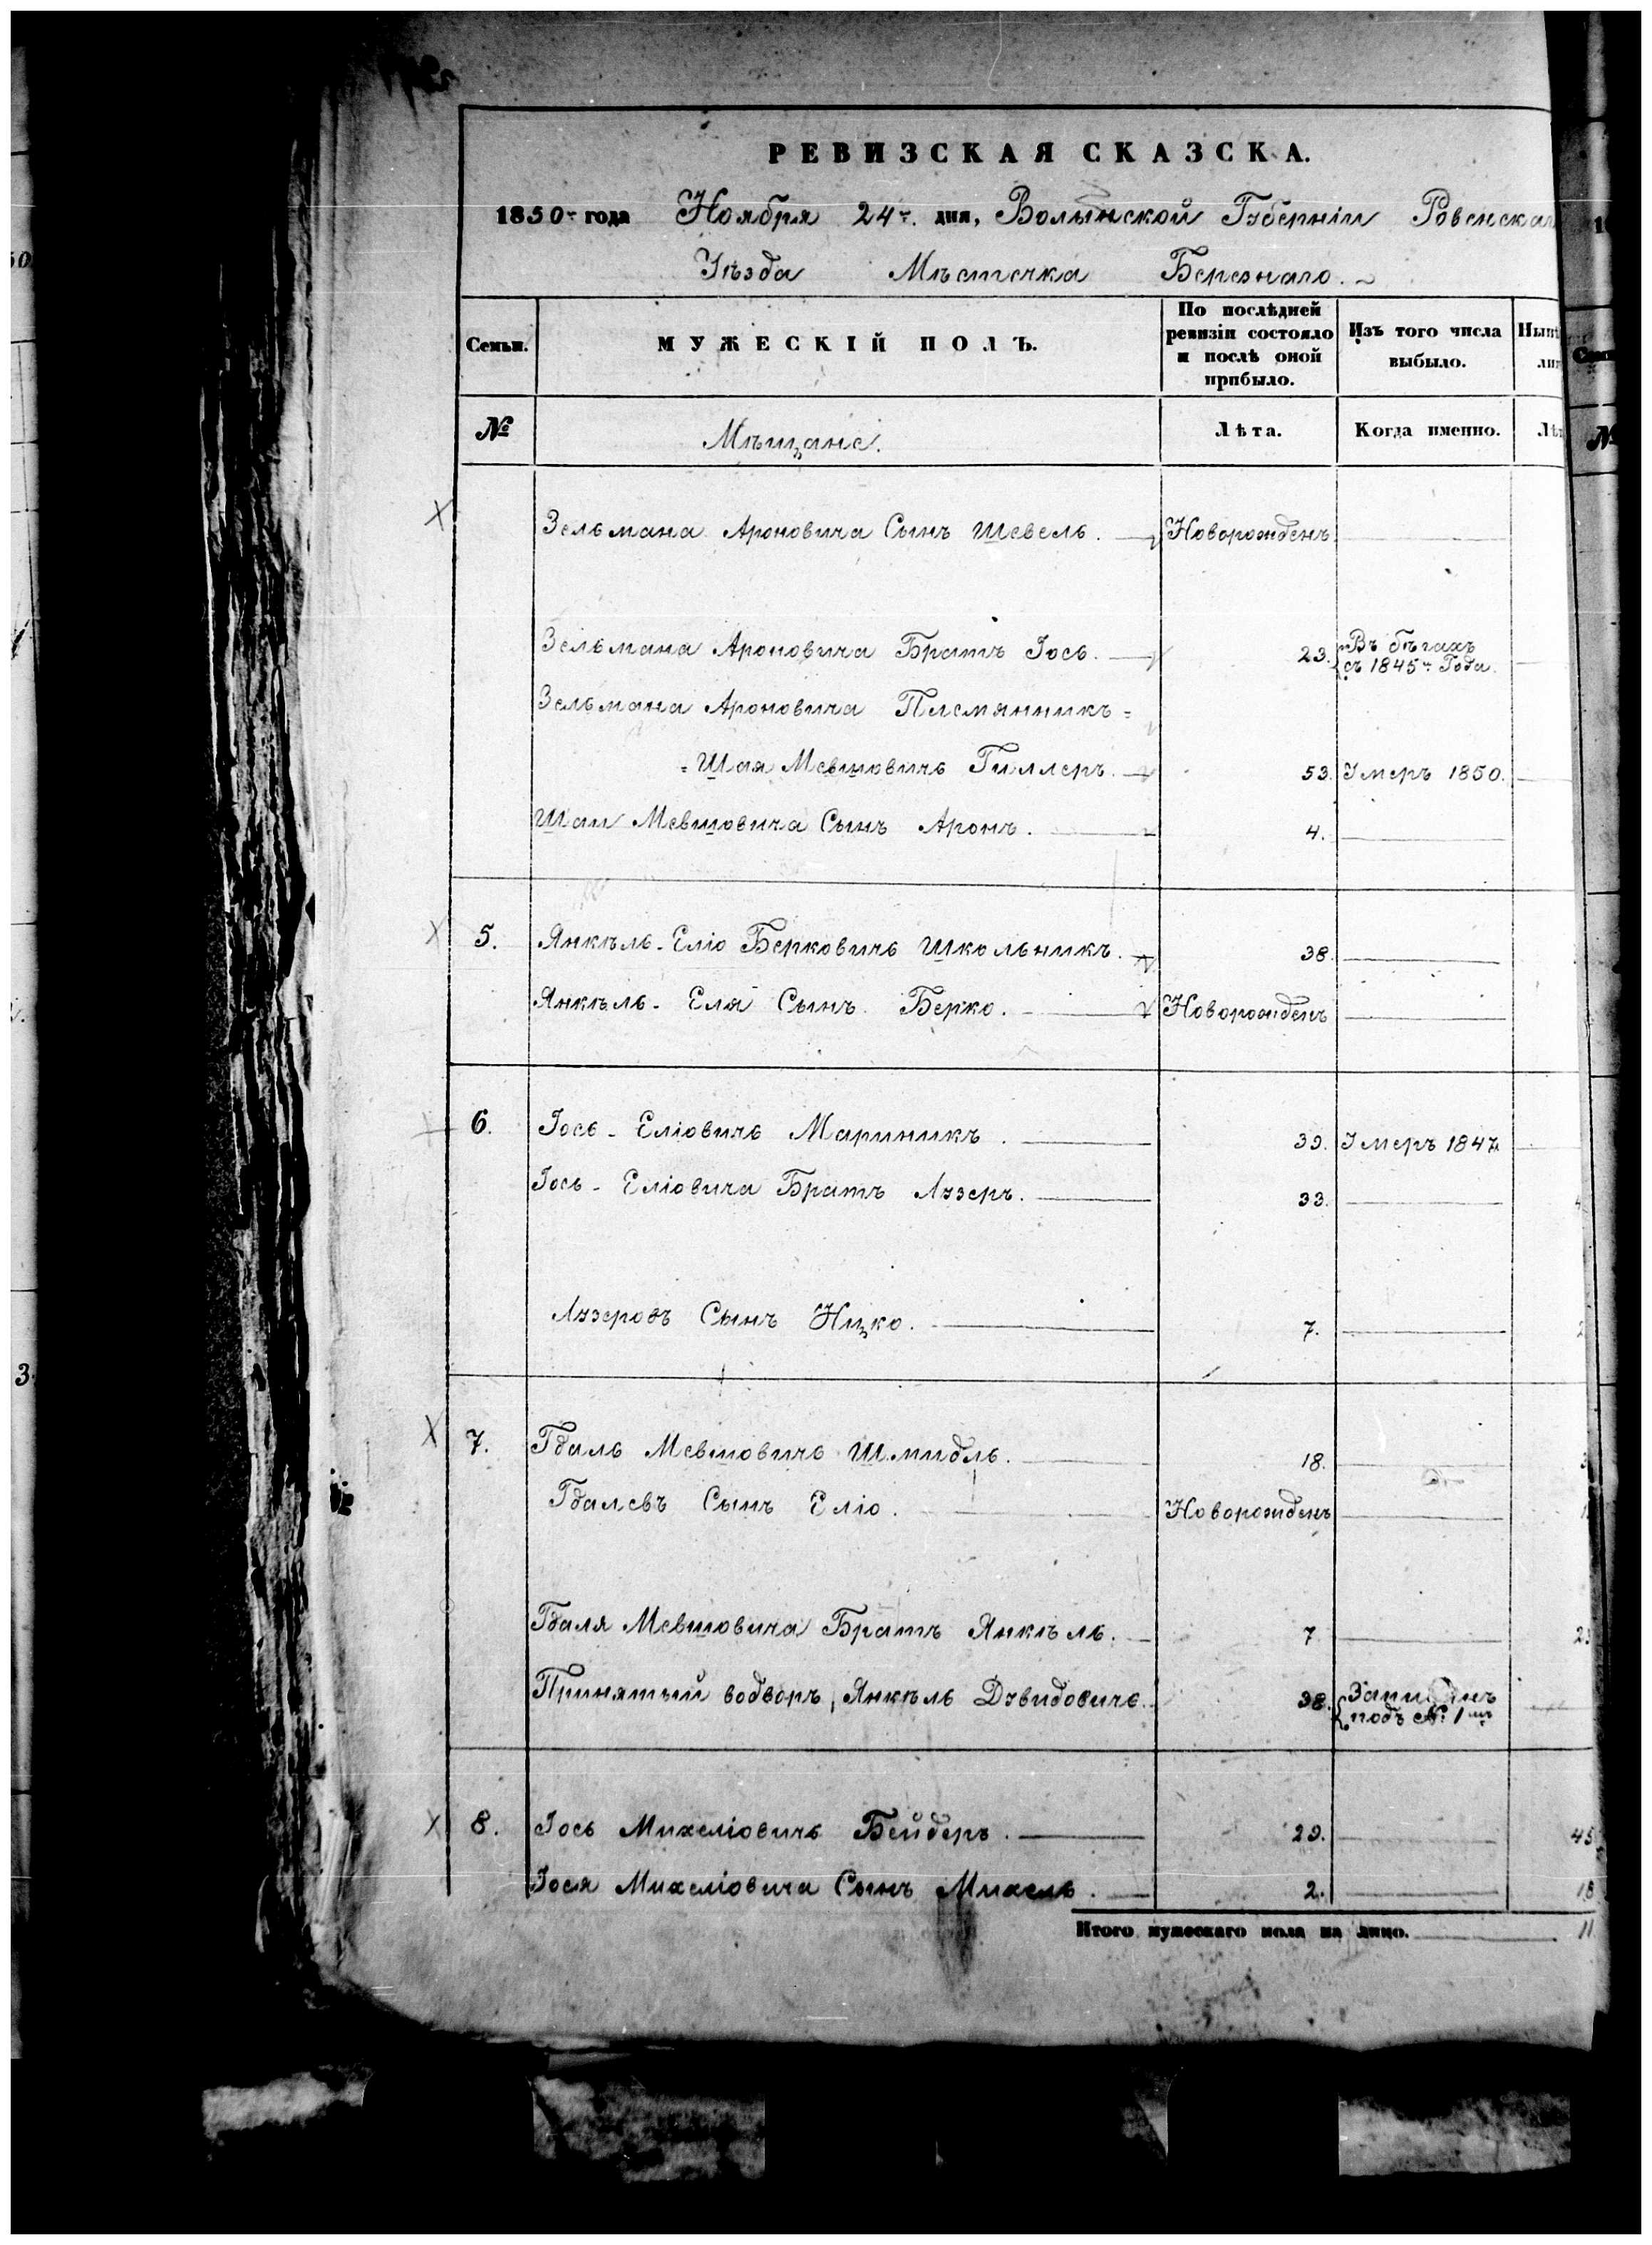 РЕВИЗСКАЯ СКАЗСКА.
1850го года Ноября 24го дня, Волынской Губерніи Ровенскаго
Уѣзда Мѣстечка Березнаго.
Семьи.
МУЖЕСКІЙ ПОЛЪ.
По послѣдней ревизіи состояло и послѣ оной прибыло.
Изъ того числа выбыло.
№
Мѣщане.
Лѣта.
Когда именно.
Лѣт
№
Зельмана Ароновича Сынъ Шевель. Новорожденъ
Зельмана Ароновича Братъ Іось. 23. Въ бѣгахъ
съ 1845го Года.
Зельмана Ароновича Племянникъ =
= Шая Мевшовичъ Гиллеръ. 53. Умеръ 1850.
Шаи Мевшовича Сынъ Аронъ. 4.
5. Янкѣль-Еліо Берковичъ Школьникъ. 38.
Янкѣль-Еля Сынъ Берко. Новорожденъ
6. Іось-Еліовичъ Мариникъ. 39. Умеръ 1847
Іось-Еліовича Братъ Лузеръ. 33.
Лузеровъ Сынъ Ицко. 7.
3.
7. Гдаль Мевшовичъ Шмидль. 18.
Гдалевъ Сынъ Еліо. Новорожденъ
Гдаля Мевшовича Братъ Янкѣль. 7
Принятый водворъ, Янкѣль Дувидовичъ. 38. Записанъ
подъ № 1мъ
8. Іось Михеліовичъ Бейдеръ. 29. 45
Іося Михеліовича Сынъ Михель. 2. 18
Итого мужескаго пола на лицо. 11